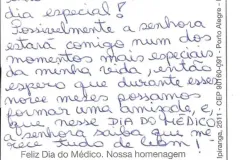 dia especial!
Possivelmente a senhora
estará comigo num dos
momentos mais especiais
da minha vida, então
espero que durante esses
nove meses possamos
formar uma amizade, e,
que nesse DIA DO MÉDICO
a senhora saiba que me
rece tudo de bom!
Feliz Dia do Médico. Nossa homenagem
Ipiranga, 2811 - CEP 90160-091 - Porto Alegre -